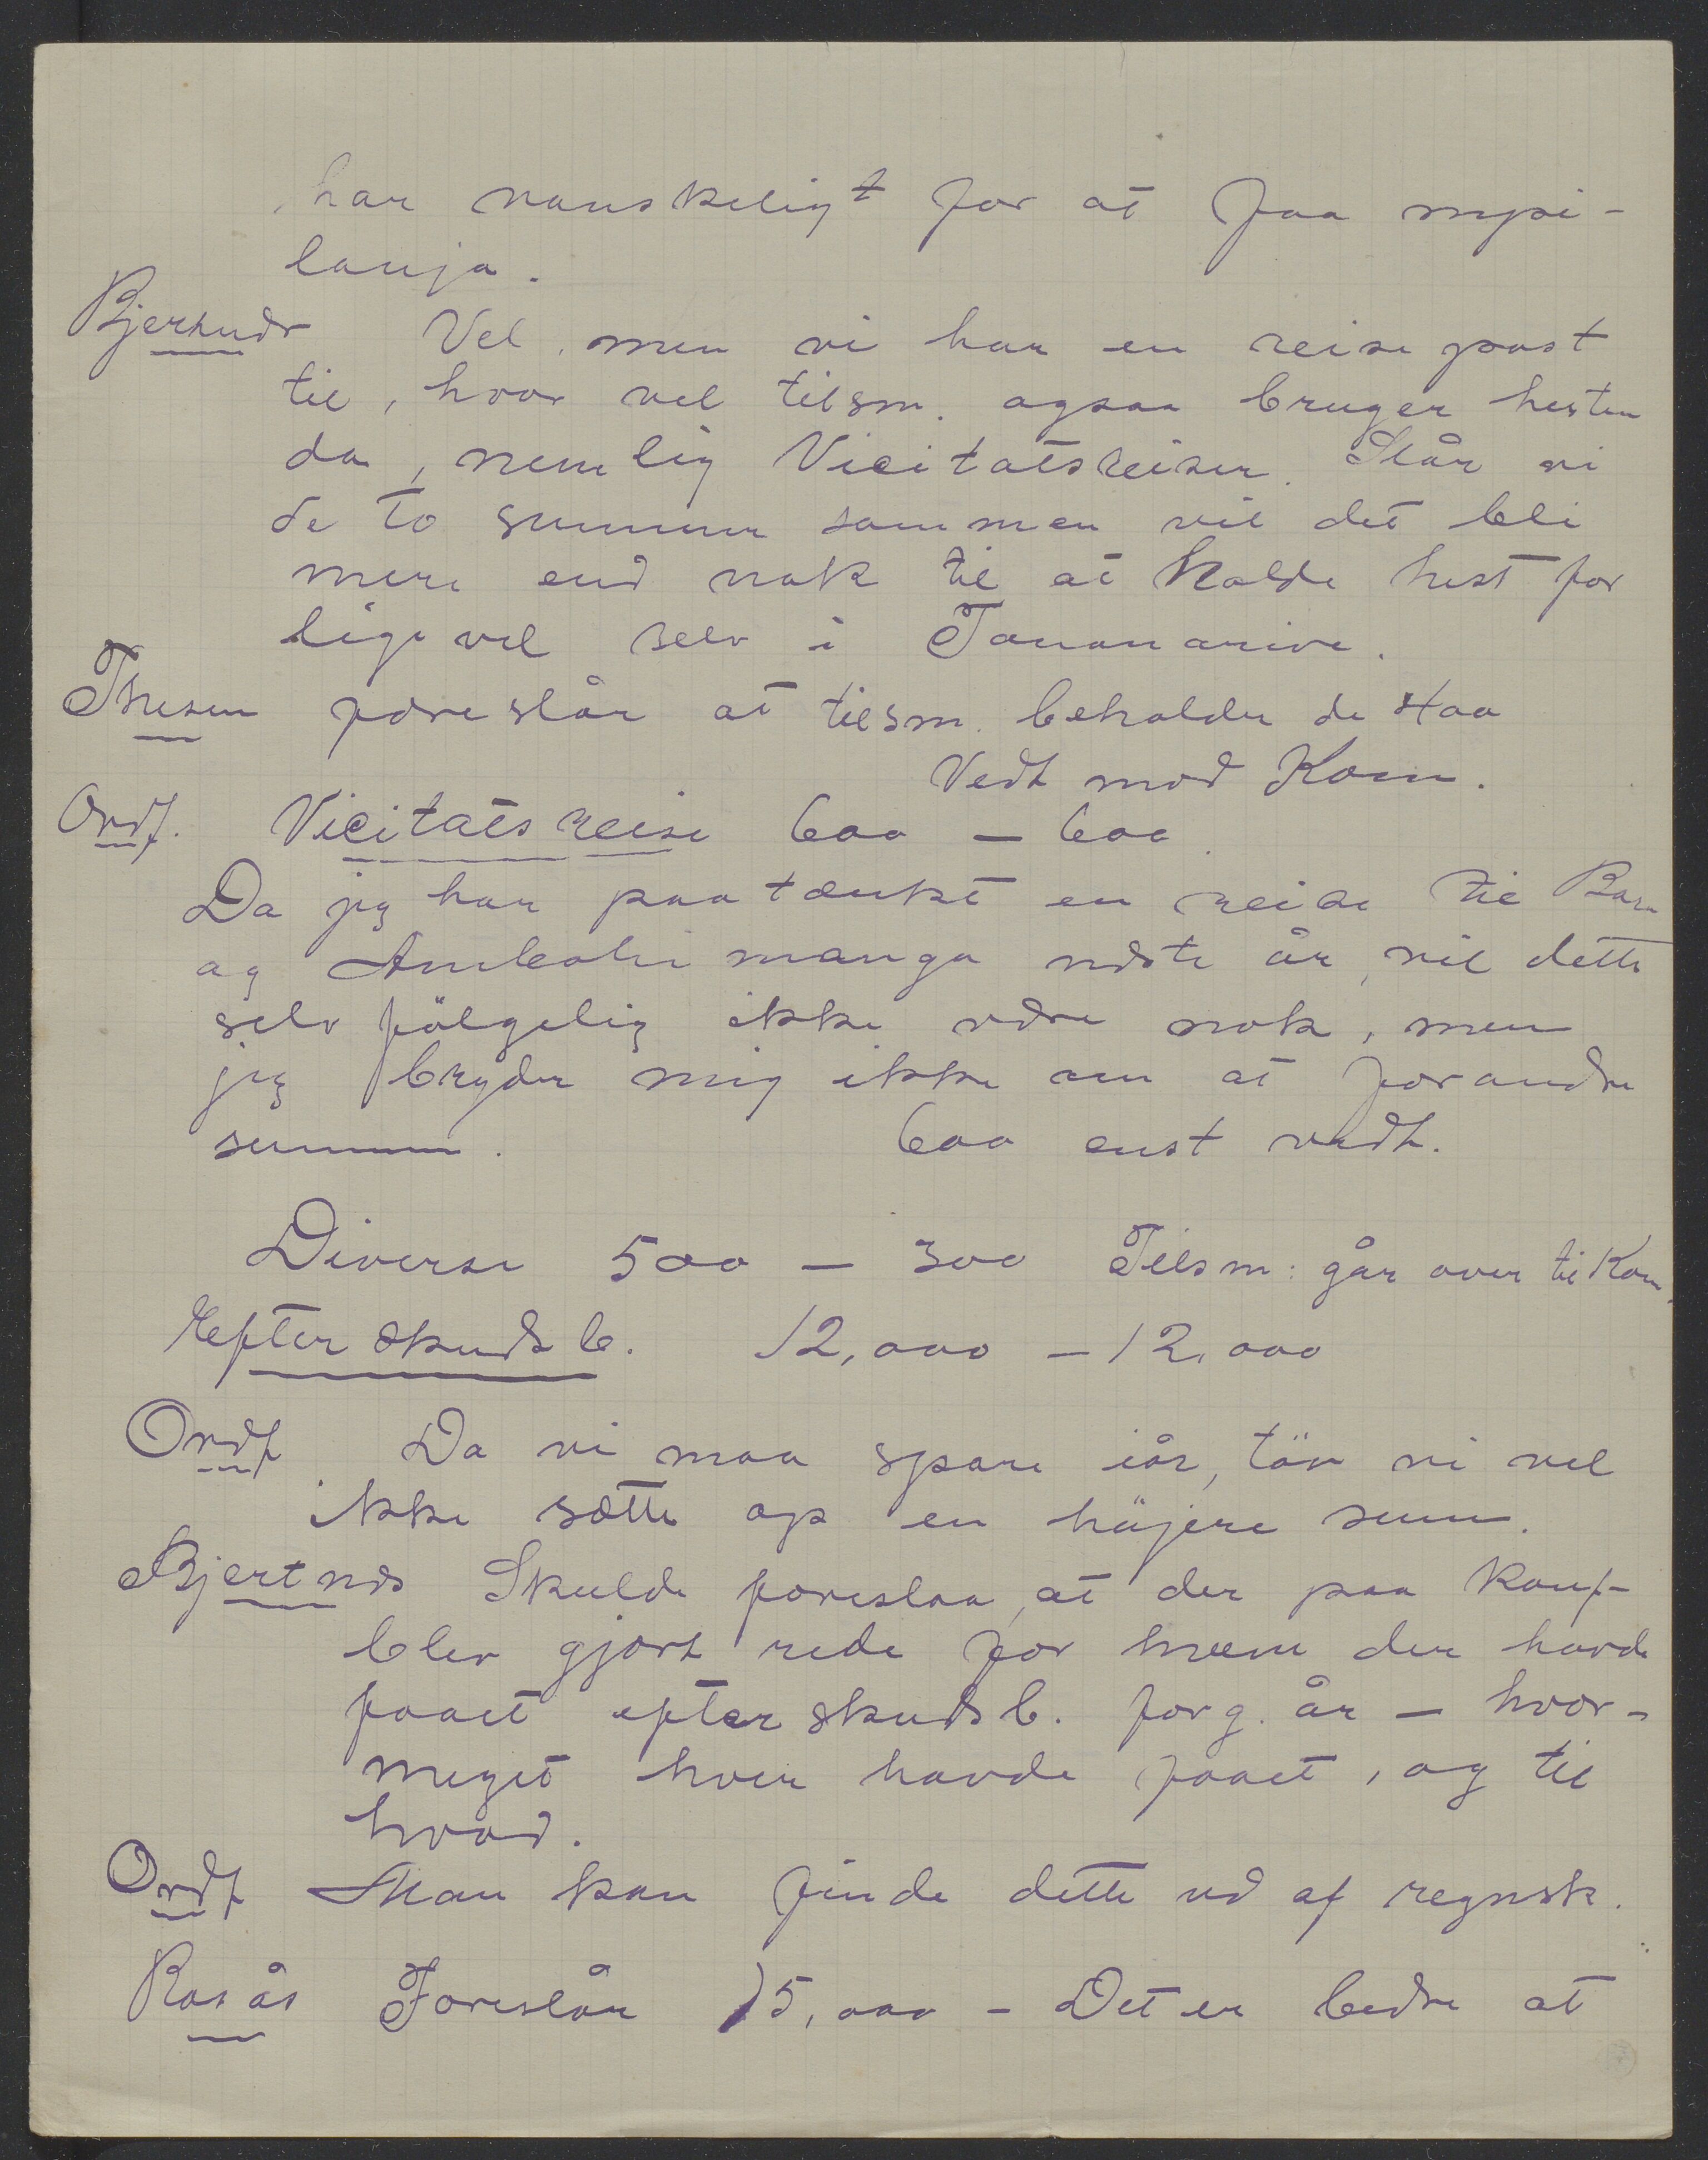 har vanskeligt for at faa mpi-
lanja.
Bjertnæs Vel, men vi har en reisepost
til, hvor vel tilsm. ogsaa bruger hesten
da, nemlig Vicitatsreiser. Slår vi
de to summer sammen vil det bli
mere end nok til at holde hest for
ligevel selv i Tananarive.
Thesen foreslår at tilsm. beholder de 400
Vedt mod Kom.
Ordf. Vicitatsreise 600 — 600.
Da jeg har paatænkt en reise til Bara
og Ambohimanga næste år, vil dette
selvfölgelig ikke være nok, men
jeg bryder mig ikke om at forandre
summen. 600 enst vedt.
Diverse 500 — 300 Tilsm: går over til Kom.
Efterskudsb. 12,000 — 12,000
Ordf Da vi maa spare iår, tör vi vel
ikke sætte op en höjere sum.
Bjertnæs Skulde foreslaa, at der paa Konf-
blev gjort rede for hvem der havde
faaet efterskudsb. forg. år — hvor-
meget hver havde faaet, og til
hvad.
Ordf Man kan finde dette ud af regnsk.
Rosås Foreslår 15,000 — Det er bedre at